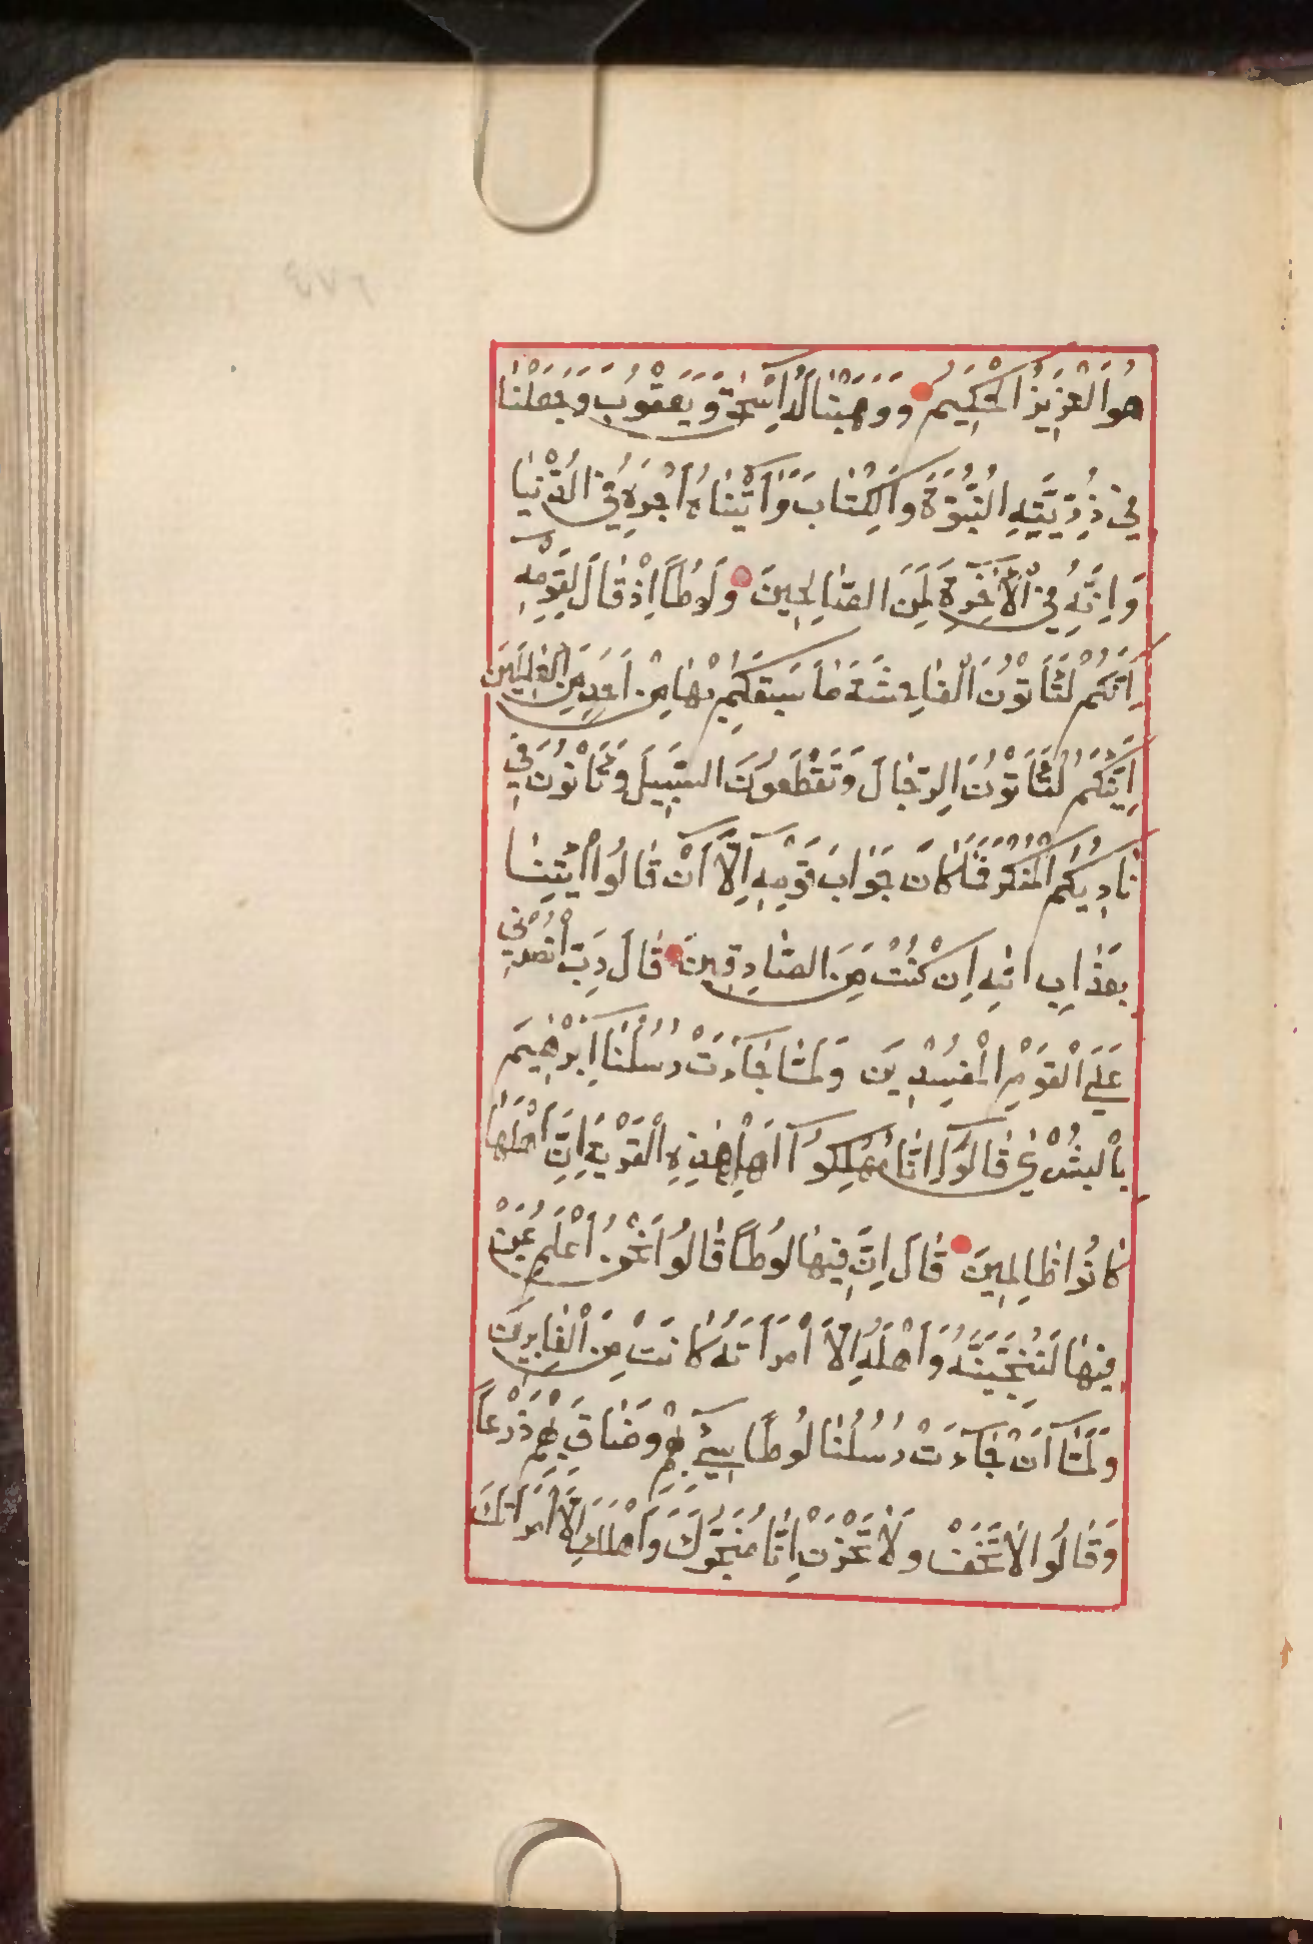 هُوَ الْعَزِيزُ الْحَكِيمُ وَوَهَبْنَا لَهُ اِسْحٰقَ وَيَعْقُوبَ وَجَعَلْنَا
فِي ذُرِّيَّتِهِ النُّبُوَّةَ وَالْكِتَابَ وَاٰتَيْنَاهُ اَجْرَهُ فِي الدُّنْيَا
وَاِنَّهُ فِي الْاٰخِرَةِ لَمِنَ الصَّالِحِينَ وَلُوطًا اِذْ قَالَ لِقَوْمِهِ
اِنَّكُمْ لَتَأْتُونَ الْفَاحِشَةَ مَا سَبَقَكُمْ بِهَا مِنْ اَحَدٍ مِنَ الْعٰلَمِينَ
اَئِنَّكُمْ لَتَأْتُونَ الرِّجَالَ وَتَقْطَعُونَ السَّبِيلَ وَتَأْتُونَ فِي
نَادِيكُمُ الْمُنْكَرَ فَمَا كَانَ جَوَابَ قَوْمِهِ اِلَّا اَنْ قَالُوا ائْتِنَا
بِعَذَابِ اللهِ اِنْ كُنْتَ مِنَ الصَّادِقِينَ قَالَ رَبِّ انْصُرْنِي
عَلَي الْقَوْمِ الْمُفْسِدِينَ وَلَمَّا جَاءَتْ رُسُلُنَا اِبْرٰهِيمَ
بِالْبُشْرٰي قَالُوا اِنَّا مُهْلِكُوا اَهْلِ هٰذِهِ الْقَرْيَةِ اِنَّ اَهْلَهَا
كَانُوا ظَالِمِينَ قَالَ اِنَّ فِيهَا لُوطًا قَالُوا نَحْنُ اَعْلَمُ بِمَنْ
فِيهَا لَنُنَجِّيَنَّهُ وَاَهْلَهُ اِلَّا امْرَاَتَهُ كَانَتْ مِنَ الْغَابِرِينَ
وَلَمَّا اَنْ جَاءَتْ رُسُلُنَا لُوطًا سِيءَ بِهِمْ وَضَاقَ بِهِمْ ذَرْعًا
وَقَالُوا لَا تَخَفْ وَلَا تَحْزَنْ اِنَّا مُنَجُّوكَ وَاَهْلَكَ اِلَّا امْرَاَتَكَ